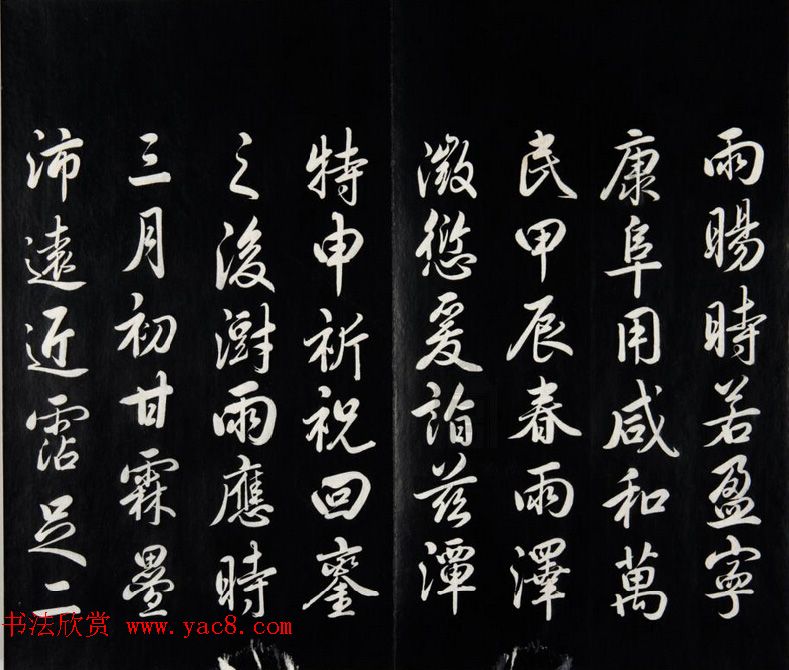 雨暘時若盈寧
康阜用咸和萬
民甲辰春雨澤
澂愆爰詣茲潭
特申祈祝回鑾
之後澍雨應時
三月初甘霖疊
沛遠近霑足二
书法欣赏 www.yac8.com